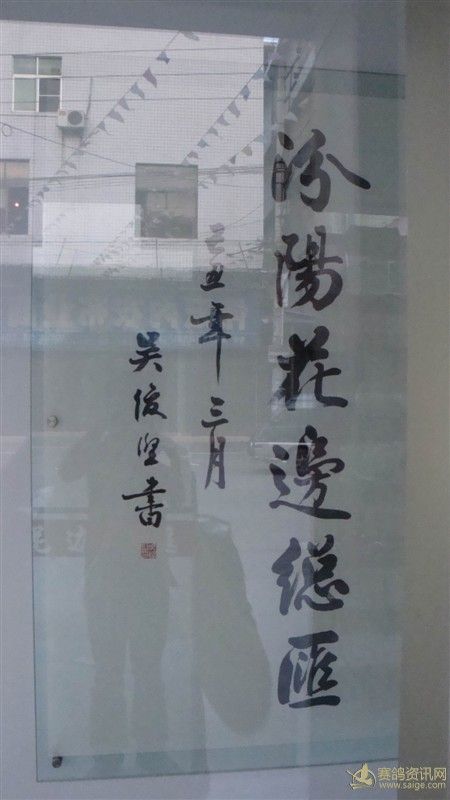 汾陽花邊總匯
己丑年三月
吴俊坚書
赛鸽资讯网
www.saige.com